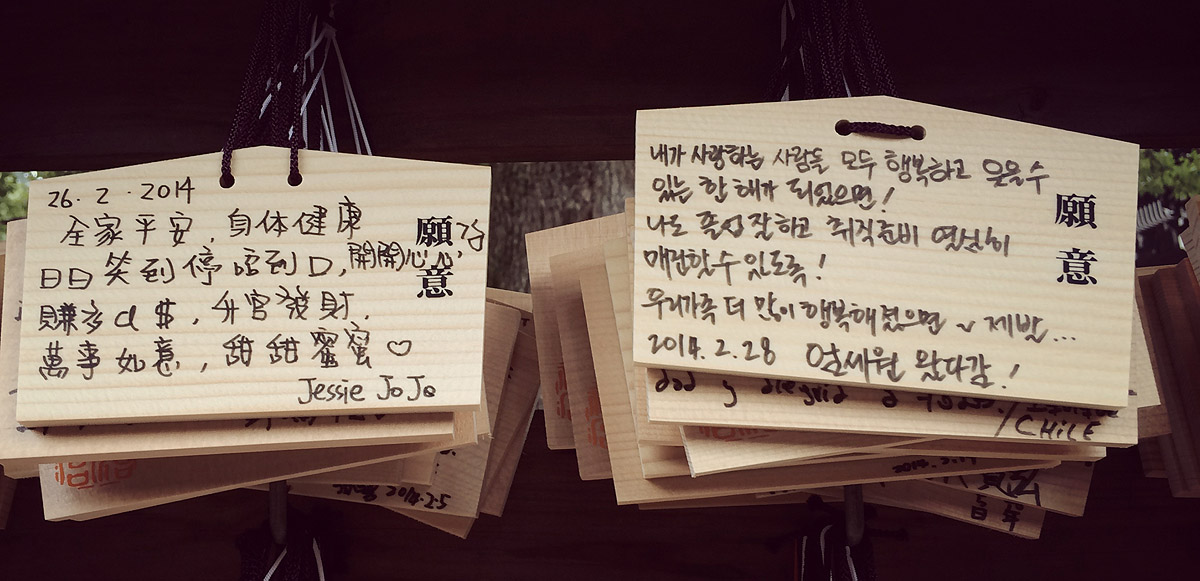 26. 2. 2014
全家平安, 身体健康
日日笑到停唔到口, 開開心心
賺多d $, 升官發財,
萬事如意, 甜甜蜜蜜♡
Jessie JoJo
願意
내가 사랑하는 사람들 모두 행복하고 웃을 수
있는 한 해가 되었으면!
나도 졸업 잘하고 취직준비 열심히
매진할 수 있도록!
우리가족 더 많이 행복해졌으면 ~ 제발...
2014. 2. 28 엄세원 왔다감!
願意
/CHILE
2014.2.5